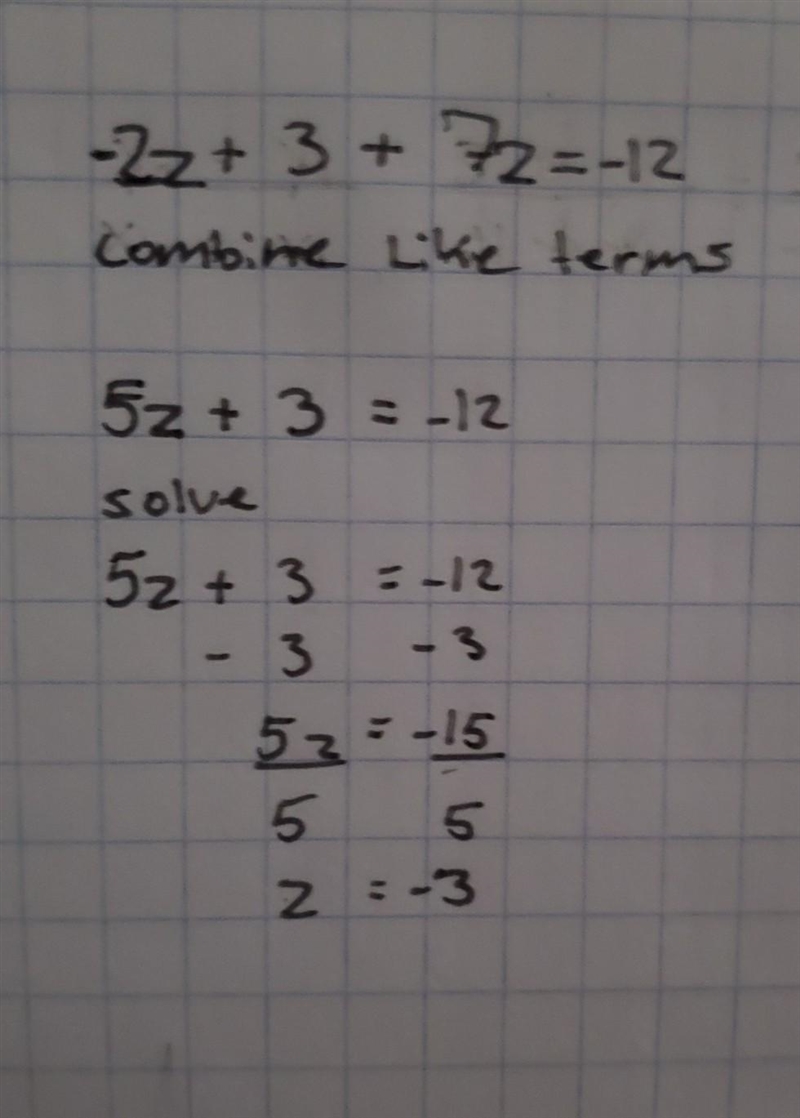 -2z + 3 + 7z = -12
combine like terms
5z + 3 = -12
solve
5z + 3 = -12
- 3 -3
5z = -15
5 5
z = -3